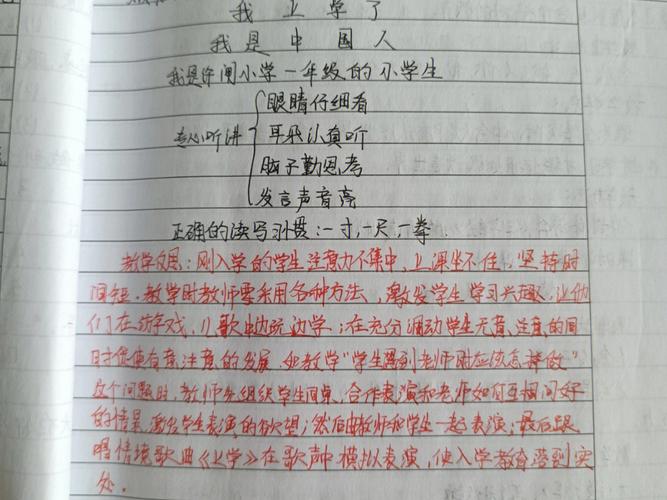 我上学了
我是中国人
我是许闸小学一年级的小学生
专心听讲
眼睛仔细看
耳朵认真听
脑子勤思考
发言声音亮
正确的读写习惯：一寸，一尺，一拳
教学反思：刚入学的学生注意力不集中，上课坐不住，坚持时
间短。教学时教师要采用各种方法，激发学生学习兴趣，让他
们在游戏、儿歌中边玩边学，在充分调动学生无意注意的同
时才促使有意注意的发展。如教学“学生遇到老师时应该怎样做”
这个问题时，教师先组织学生，合作表演和老师如何互相问好
的情景，激发学生表演的欲望；然后由教师和学生一起表演；最后跟
唱情境歌曲《上学》在歌声中模拟表演，使入学教育落到实
处。